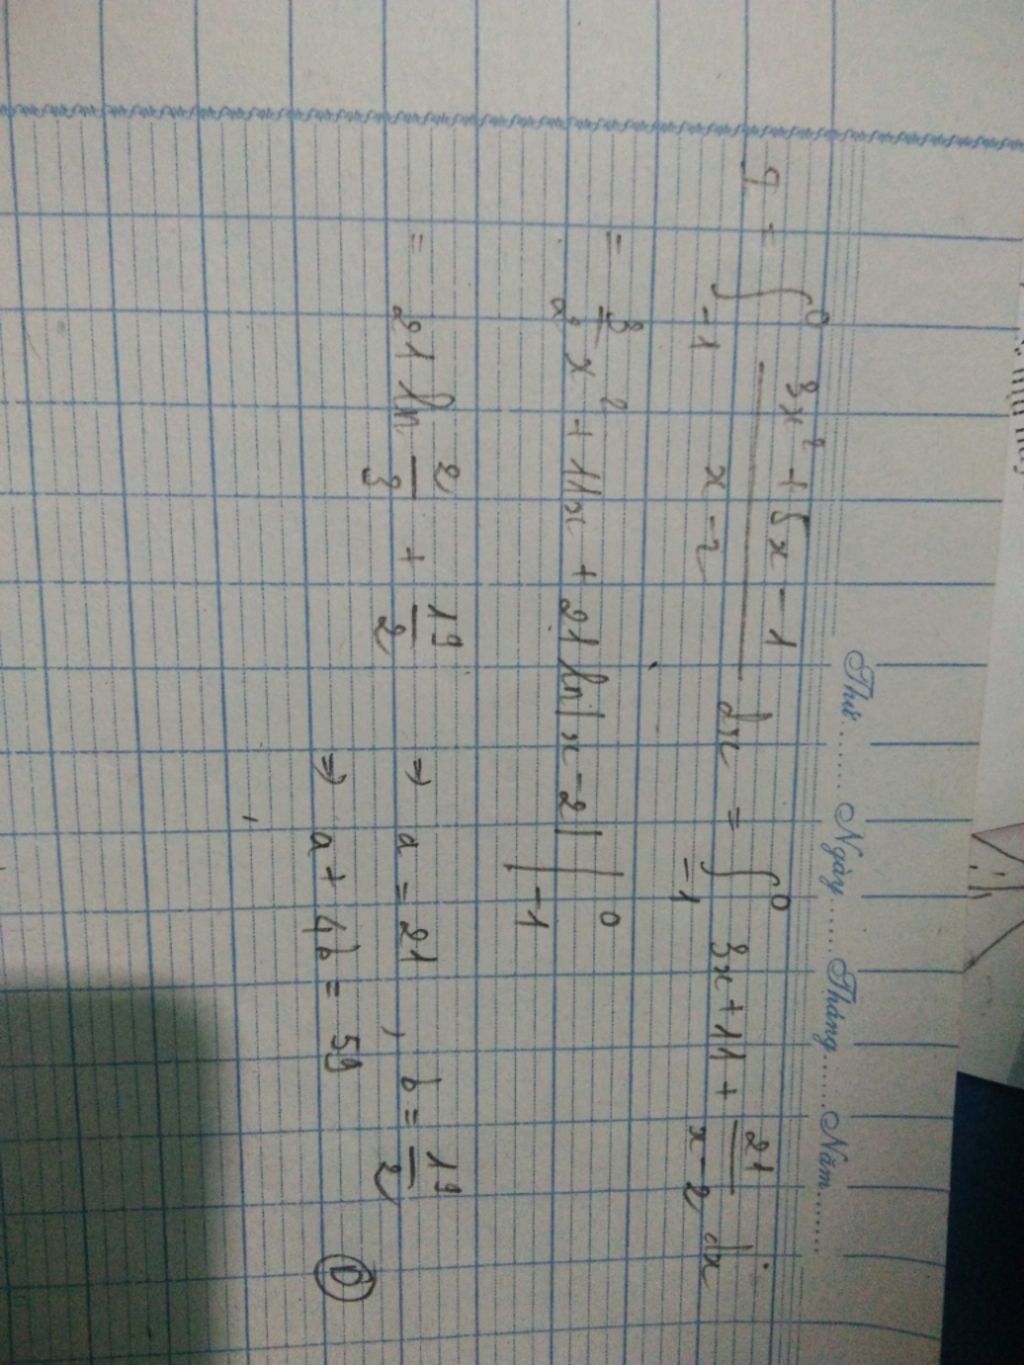 Thứ........ Ngày........ Tháng........ Năm........
I = ∫₋₁⁰ (3x² + 5x - 1)/(x - 2) dx = ∫₋₁⁰ 3x + 11 + 21/(x - 2) dx
= 3/2 x² + 11x + 21 ln|x - 2| |₋₁⁰
= 21 ln 2/3 + 19/2 ⇒ a = 21, b = 19/2
⇒ a + 4b = 59 Ⓓ